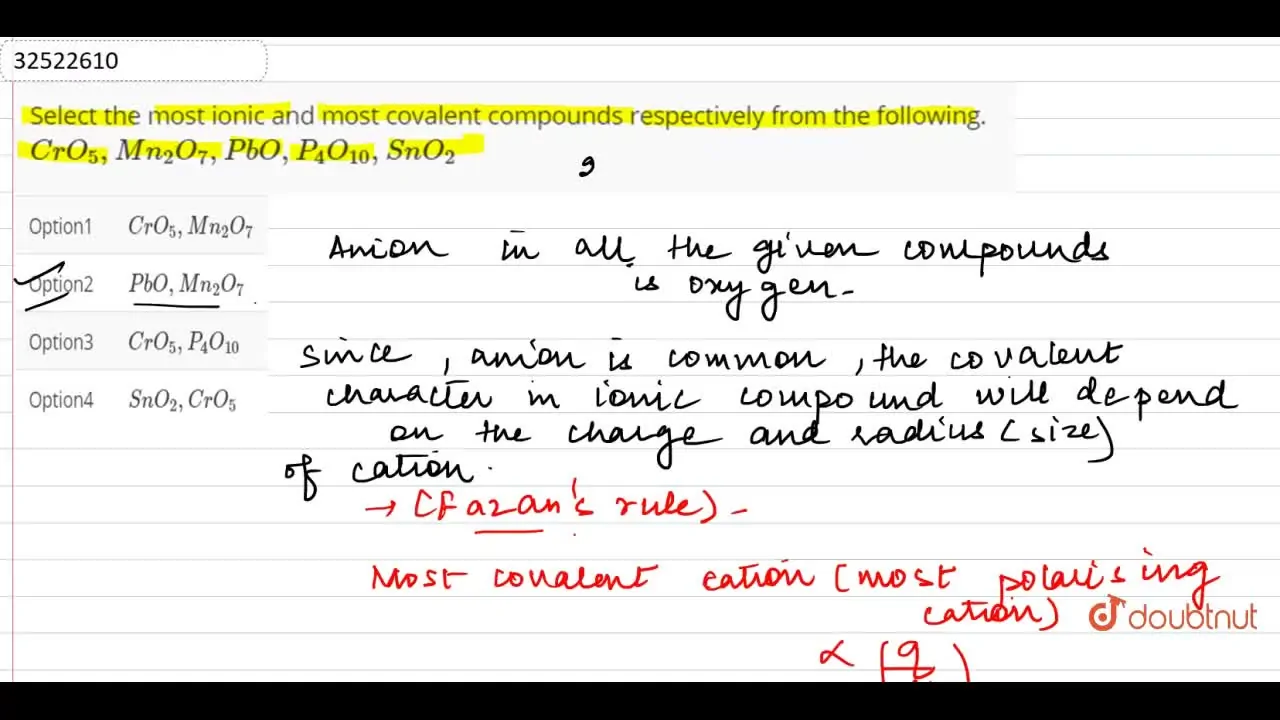 32522610
Select the most ionic and most covalent compounds respectively from the following.
CrO₅, Mn₂O₇, PbO, P₄O₁₀, SnO₂
Option1 CrO₅, Mn₂O₇
Option2 PbO, Mn₂O₇
Option3 CrO₅, P₄O₁₀
Option4 SnO₂, CrO₅
Anion in all the given compounds
is oxygen.
Since, anion is common, the covalent
character in ionic compound will depend
on the charge and radius (size)
of cation.
→ (Fazan's rule) -
Most covalent cation (most polarising
cation)
doubtnut
∝ (q